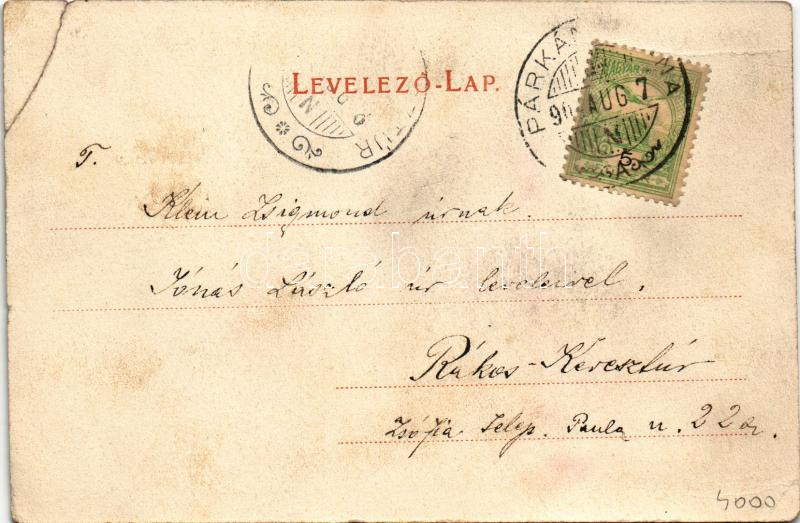 LEVELEZŐ-LAP.
PÁRKÁN NÁNA
90 AUG 7
TÚR
MAGYAR
5
T.
Klein Zsigmond úrnak.
Jónás László úr leveleivel.
Rákos-Keresztúr
Zsófia Telep. Paula u. 22
darabanth
4000